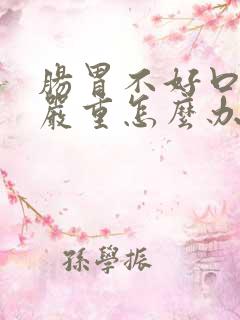 腸胃不好口
嚴重怎麼办
孫學振